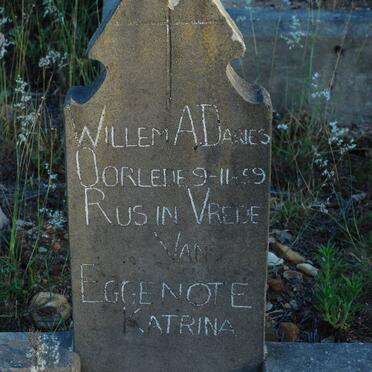 WILLEM A. DAVIES
OORLEDE 9-11-59
RUS IN VREDE
VAN
EGGENOTE
KATRINA